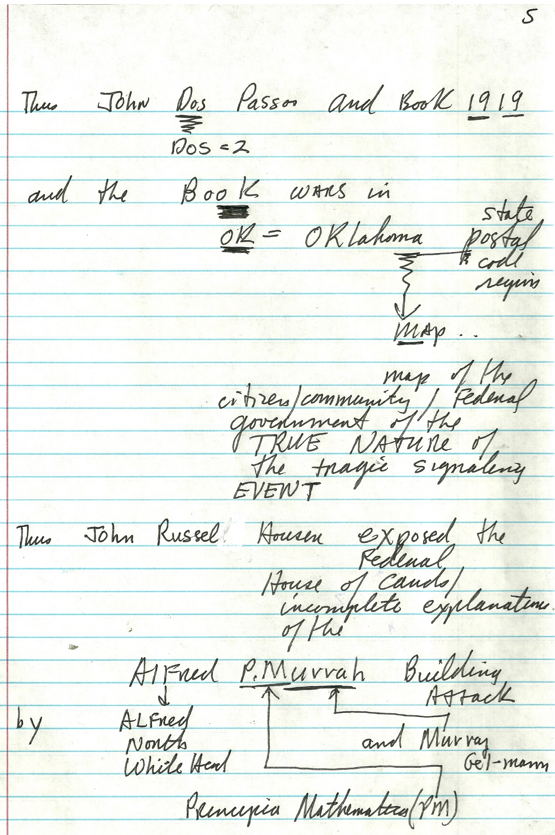 5
Thus John Dos Passos and Book 1919
DOS = 2
and the BooK wars in
OK = OKlahoma
state
postal
code
map ..
map of the
citizens/community / Federal
government of the
TRUE NATURE of
the tragic signaling
EVENT
Thus John Russel Housen exposed the
Federal
House of Cards/
incomplete explanations
of the
Alfred P. Murrah Building
Attack
by
ALFred
North
White Head
and Murray
Gel-mann
Principia Mathematica (PM)